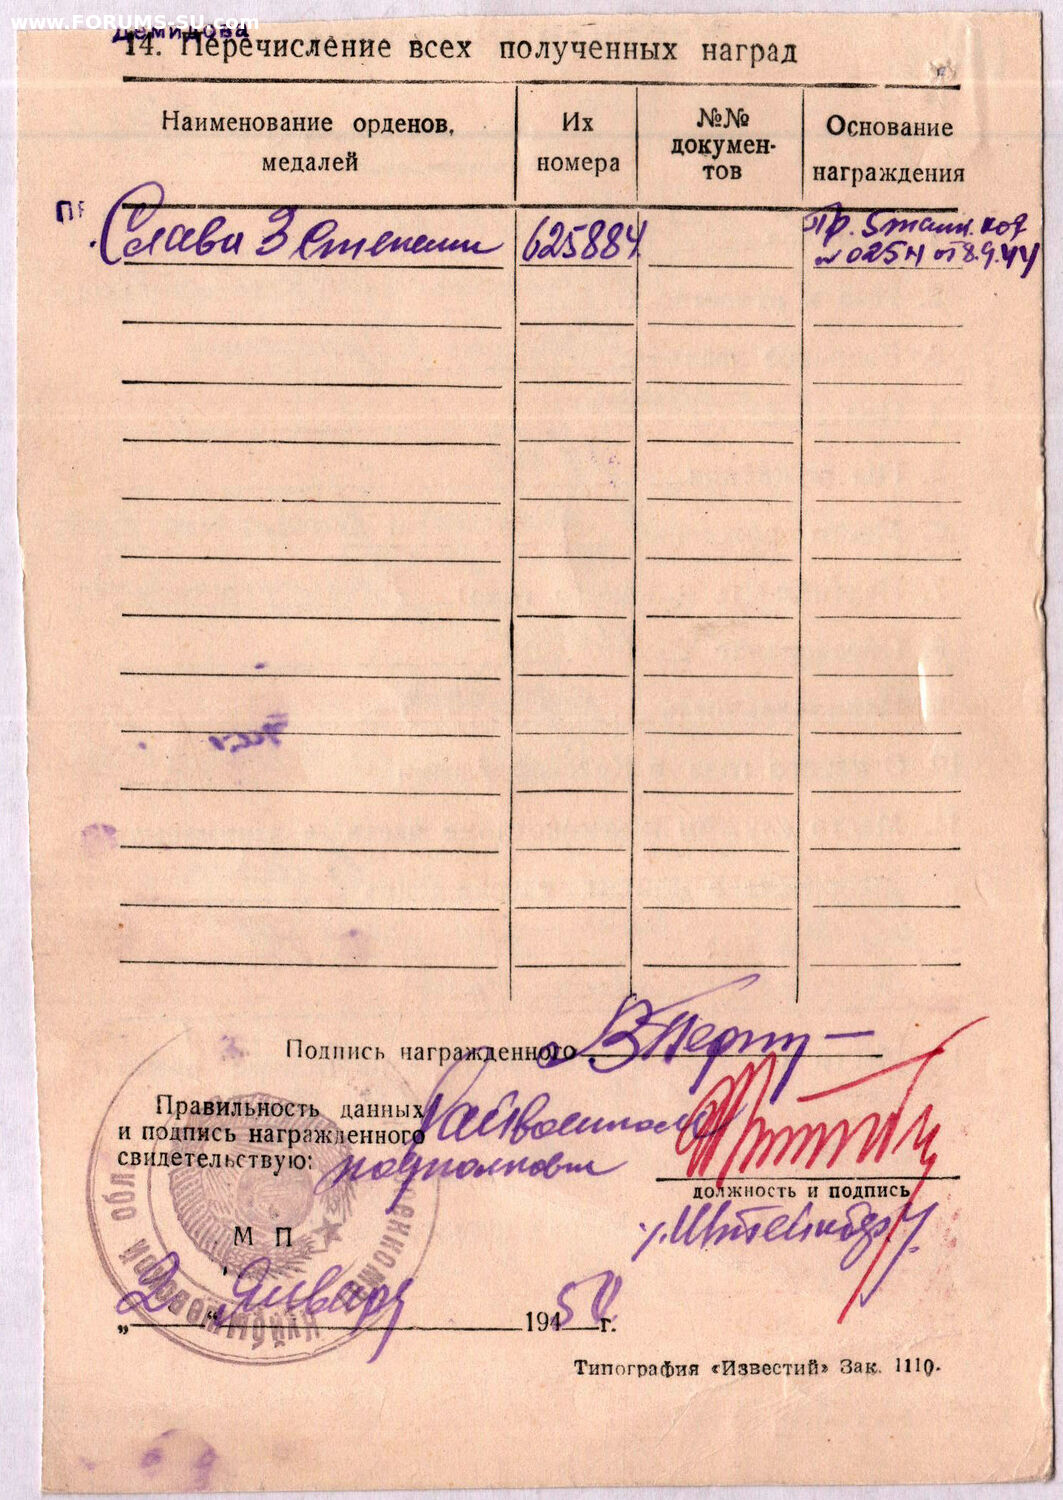 www.FORUMS-SU.com
Демидова
14. Перечисление всех полученных наград
Наименование орденов, медалей
Их номера
№№ докумен- тов
Основание награждения
Слава 3 степени
625884
Пр. 5 танк. кор
№ 025н от 8.9.44
Подпись награжденного
Правильность данных
и подпись награжденного
свидетельствую:
Райвоенком
подполковник
должность и подпись
М П
„ 2 " Января 194 50 г.
Типография «Известий» Зак. 1110.